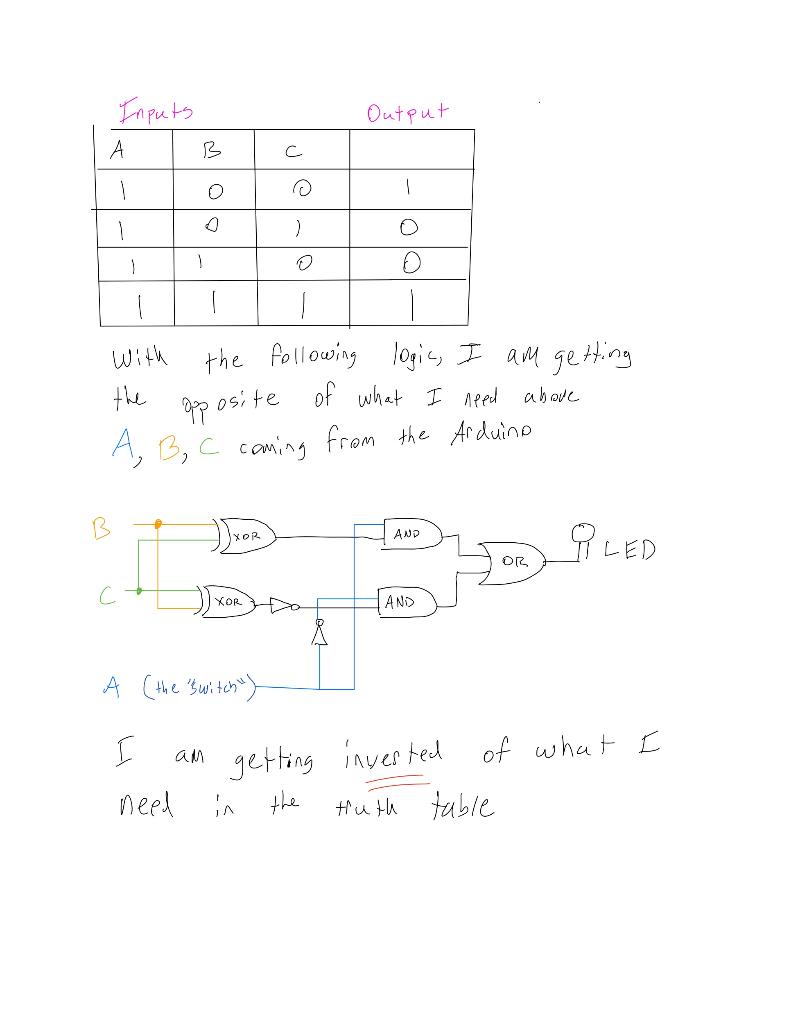 Inputs Output
A B C
1 0 0 1
1 0 1 0
1 1 0 0
1 1 1 1
With the following logic, I am getting
the opposite of what I need above
A, B, C coming from the Arduino
B XOR AND
OR LED
C XOR AND
A (the "switch")
I am getting inverted of what I
need in the truth table